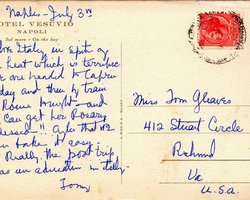 Naples – July 3rd
HOTEL VESUVIO
NAPOLI
Sul mare - On the bay
ove Italy in spite of
heat which is terrific
e are headed to Capri
day and then by train
Rome might – and
can get her Rosary
lessed" After that we
take it easy
Really, the boat trip
as an education in itself –
Tom
Miss Tom Gleaves
412 Stuart Circle
Richmond
Va
U.S.A.